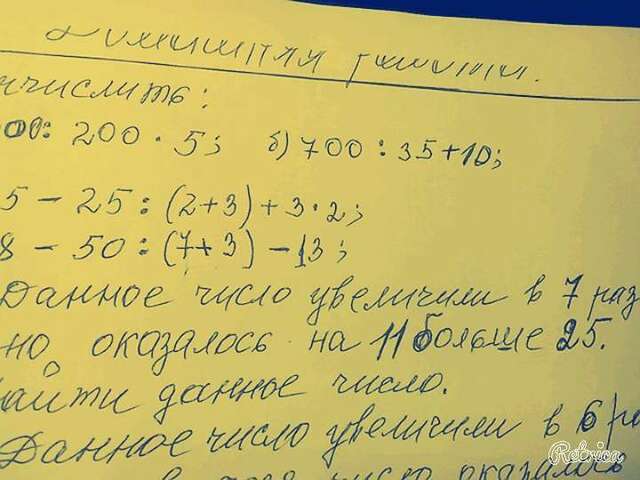 Домашняя работа.
числить:
200 · 5; б) 700 : 35 + 10;
5 - 25 : (2+3) + 3·2;
8 - 50 : (7+3) - 13;
Данное число увеличили в 7 раз
но оказалось на 11 больше 25.
айти данное число.
Данное число увеличили в 6 ра
число оказалось
Retrica